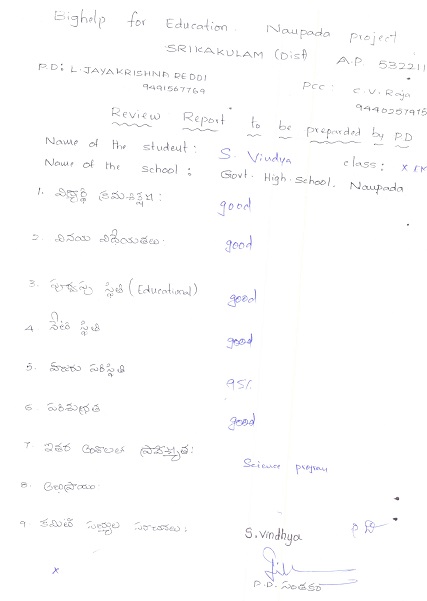 Bighelp for Education. Naupada project
SRIKAKULAM (Dist) A.P. 532211
P.D: L. JAYAKRISHNA REDDI
9491567769
PCC: C.V. Raja
9440257915
Review Report to be preparded by PD
Name of the student: S. Vindya class: X
Name of the school: Govt. High. School, Naupada
1. విద్యార్థి క్రమశిక్షణ: good
2. వినయ విధేయతలు: good
3. స్థితి (Educational) good
4. నేటి స్థితి good
5. హాజరు పరిస్థితి 95%
6. పరిశుభ్రత good
7. ఇతర అంశాలలో ప్రావీణ్యత: Science
8. అభిప్రాయం:
9. కమిటీ సభ్యుల
S. Vindhya P.D
P.D. సంతకం
x